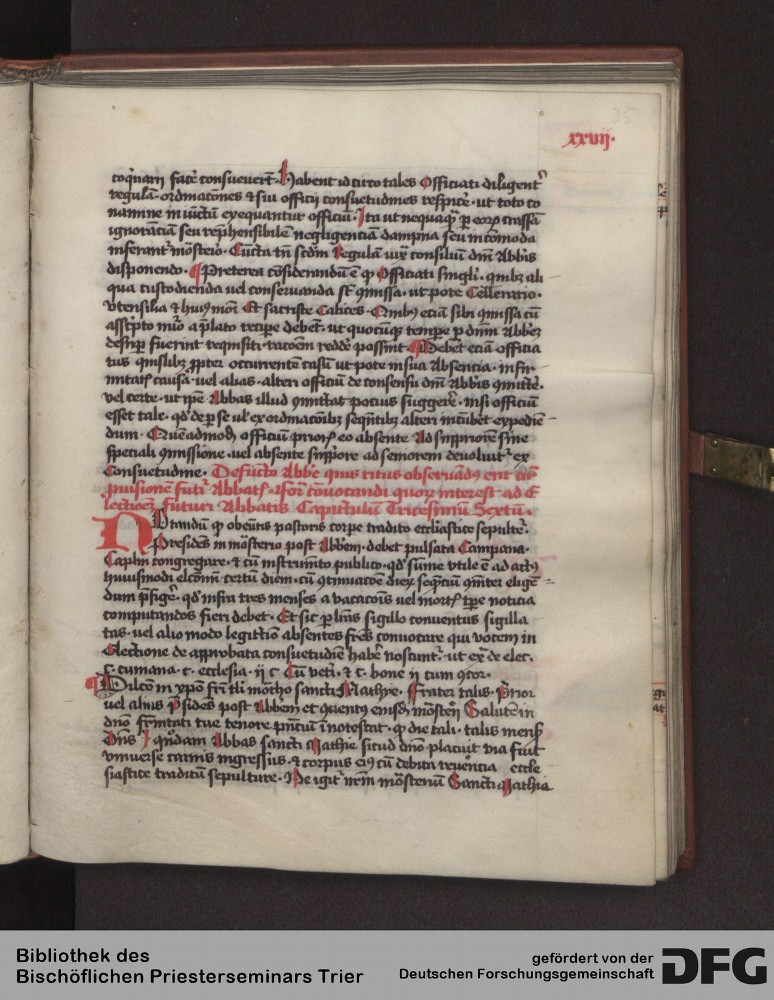 35
xxvij.
coq̄narij facē consueuerūt. Habent id circo tales Officiati diligent̄
regulā ordinacōnes & sui officij consuetudines respicē. ut toto co
namine iniūctū exequantur officiū. Ita ut nequaq̄ p eorū crassā
ignorāciā seu rep̄hensibilē negligenciā dampna seu incōmoda
inferant̄ mōsterio. Cūcta tn̄ scdm̄ Regulā iux̄ consiliū dnī Abb̄is
disponendo. Preterea cōsiderandū ē q̄ Officiati singl̄i. quib; ali
qua custodienda uel conseruanda sūt ꝯmissa. ut pote Cellerario.
vtensilia & hui9mōi Et sacriste Calices. Om̄ib; eciā sibi ꝯmissa cū
asc̄pto nūo a p̄lato recipe debēt. ut quociūq; tempe p dnm̄ Abbēz
desup fuerint requisiti. racōem reddē possint. Debēt eciā officia
tus quislib; ꝓpter occurrentē casū ut pote in sua Absencia. infir
mitatis causa. uel alias. alteri officiū de consensu dnī Abb̄is ꝯmittē.
vel certe. ut ip̄e Abbas illud ꝯmittat pocius suggerē. nisi officiū
esset tale. qd̄ de p se ul̄ ex ordinacōib; seq̄ntib; alteri incūbet expedien
dum. Quēadmodū officiū prioris eo absente Ad suppriorē sine
speciali ꝯmissione. uel absente supiore ad seniorem deuoluit̄ ex
Consuetudine. Defūcto Abbē quis ritus obseruādus erit circa
puisionē futuri Abbatis. & for̄ cōuocandi quorū interest ad E
lectioēz futuri Abbatis Capitulum Tricesimū Sextū.
Notandū q̄ obeūtis pastoris corpe tradito eccl̄iastice sepulture.
Presidēs in mōsterio post Abbēm. debet pulsata Campana.
Capl̄m congregare. & cū instrumēto publico. qd̄ sūme vtile ē ad actus
huiusmodi elc̄onīm certū diem. cū ꝯtinuacōe dierū seq̄ncium ꝯmūiter eligē
dum p̄figē. qd̄ infra tres menses a vacacōis uel mortis tp̄e noticia
computandos fieri debet. Et sic p lr̄as sigillo conuentus sigilla
tas. uel alio modo legittīo absentes fr̄es conuocare qui vocem in
Electione de approbata consuetudīe habē noscunt̄. ut ex̄ de elec.
c. cumana. c. ecclesia. ij c Cū vetī. & c. bone ij cum ꝯcor.
Dilc̄o in xp̄o fr̄i tl̄i mōcho sancti Mathie. Frater talis. Prior
uel alius p̄sidēs post Abbēm et ꝯuentus eiusd̄ mōsterij Salutē in
dnō fr̄nitati tue tenore pn̄ciū īnotescat. q̄ die tali. talis mensis
Dn̄s I quōdam Abbas sancti Mathie sicud dnō placuit via fuit
vniuerse carnis ingressus. & corpus eius cū debita reuērntia eccle
siastice traditū sepulture. Ne igit̄ nr̄m mōsteriū Sancti Mathia
Bibliothek des
Bischöflichen Priesterseminars Trier
gefördert von der
Deutschen Forschungsgemeinschaft
DFG